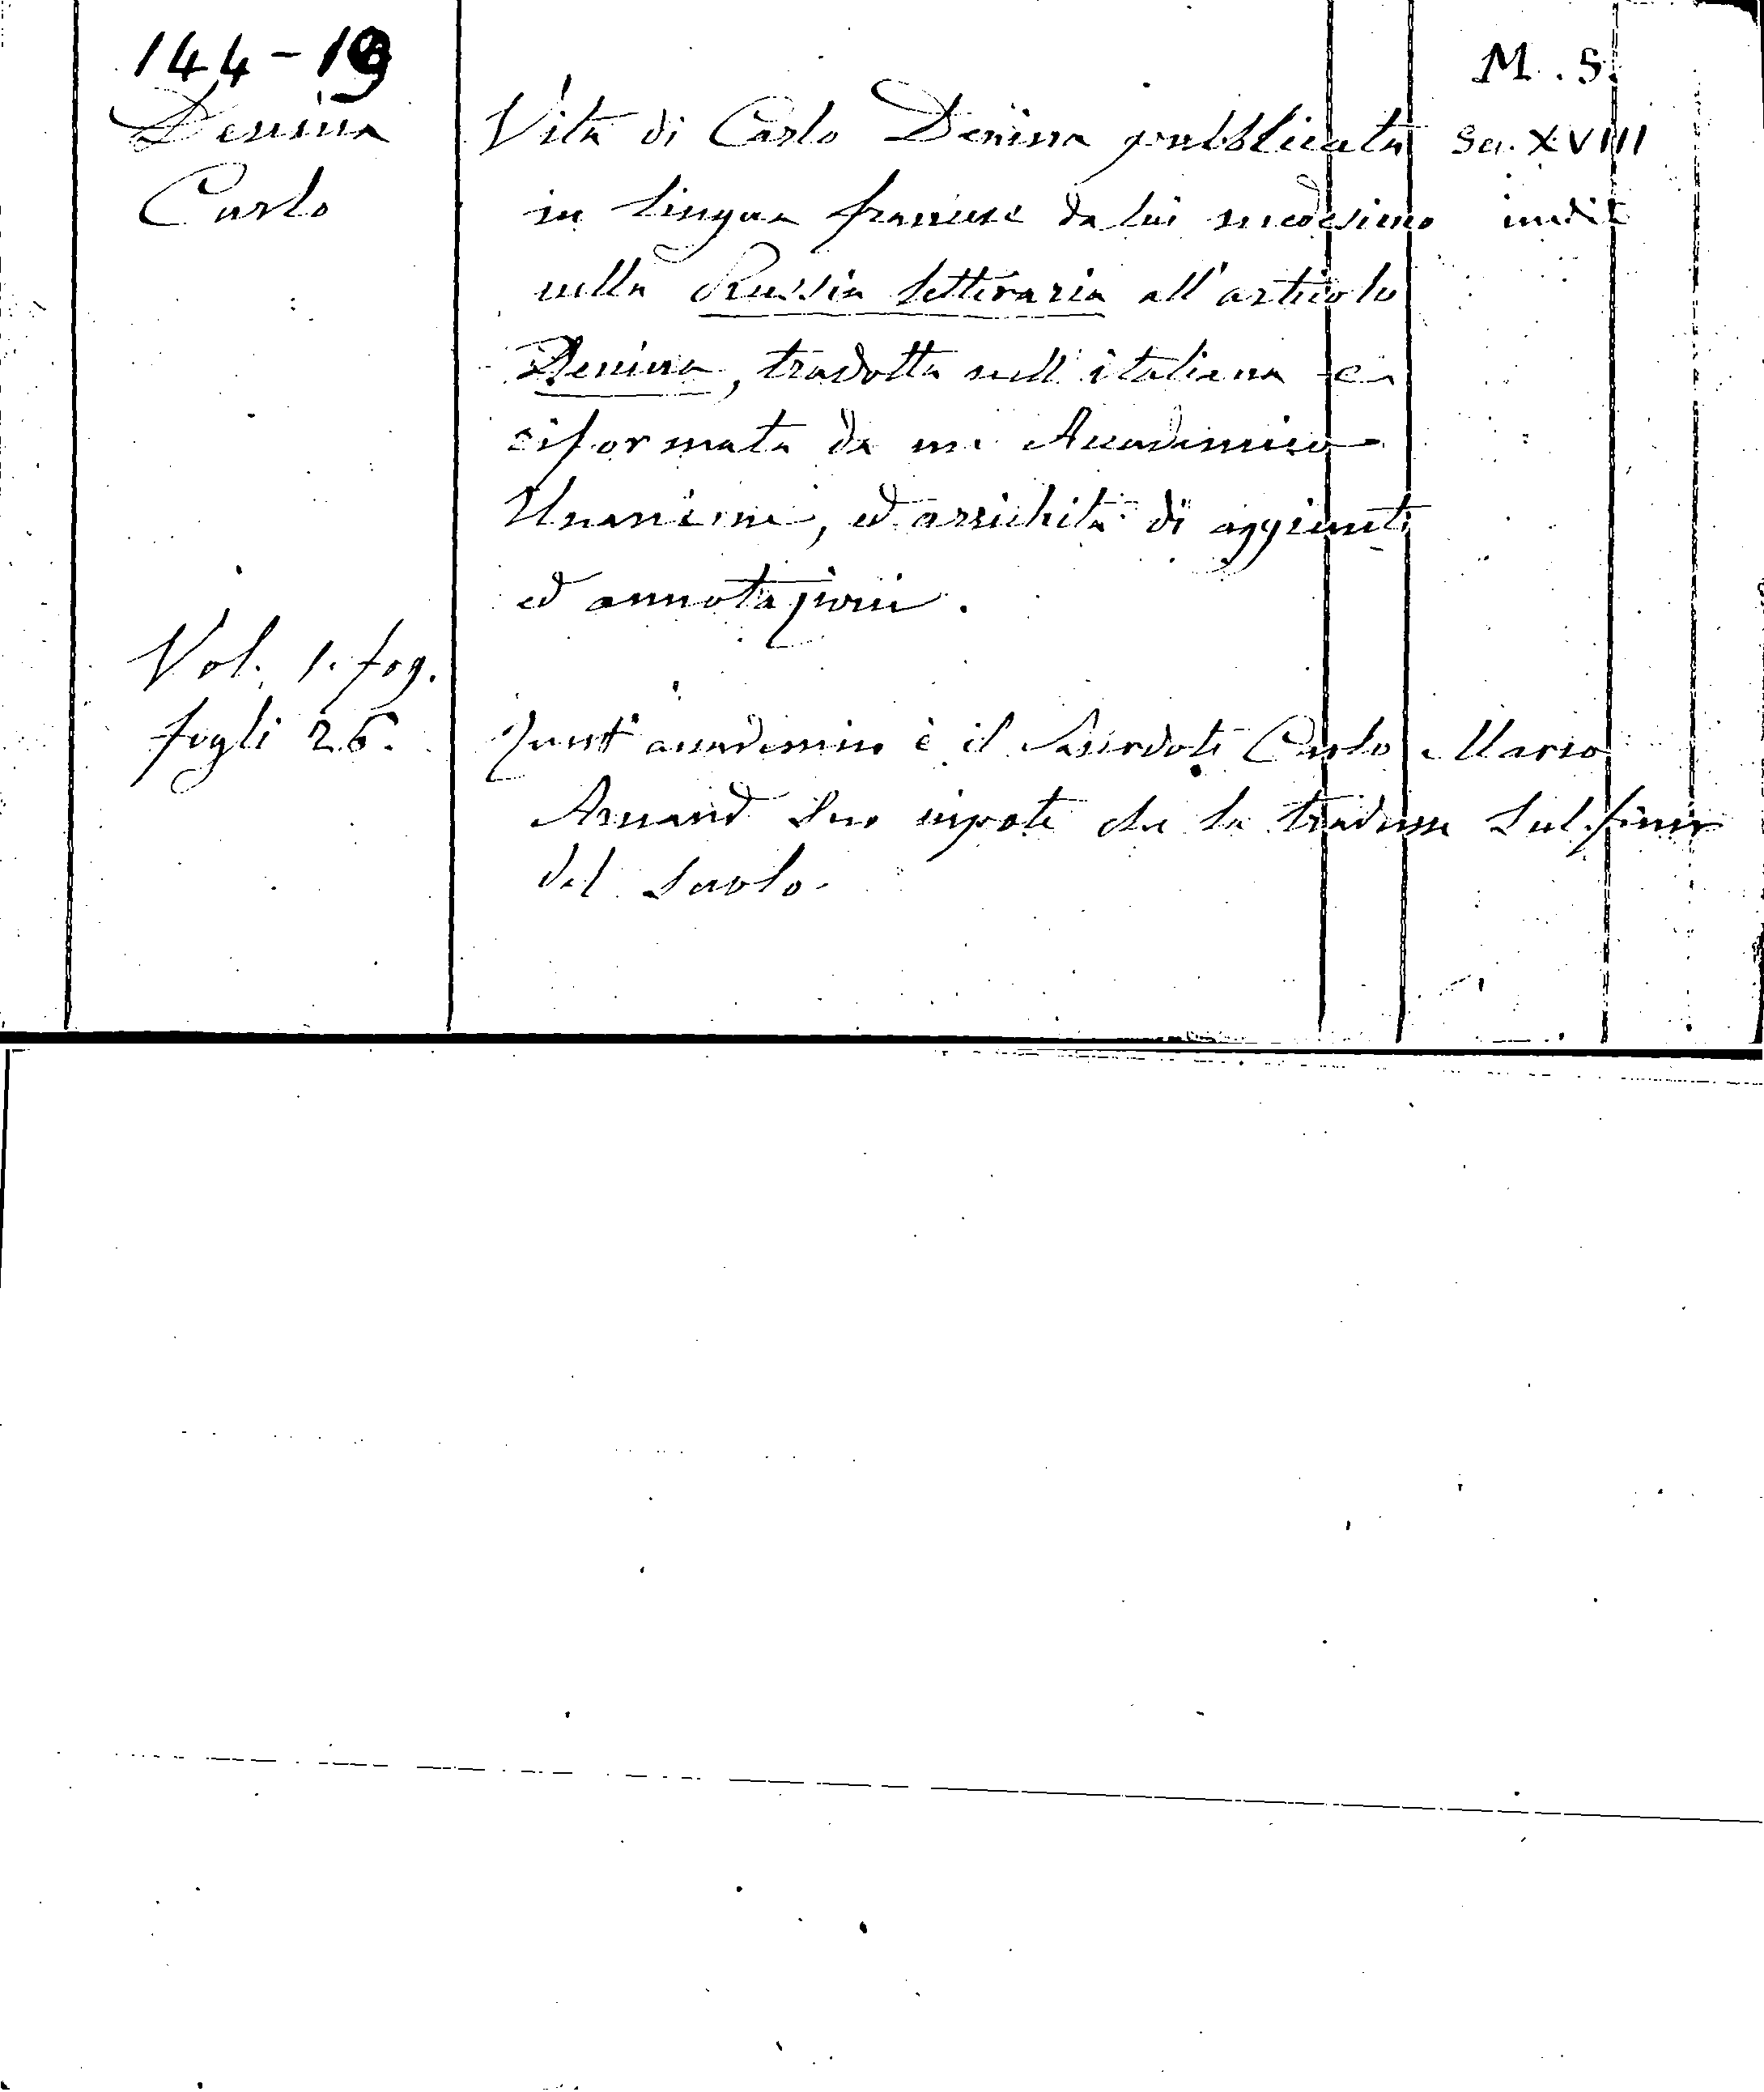 144-19
Denina
Carlo
Vol. 1. fog.
fogli 26.
Vita di Carlo Denina pubblicata
in lingua francese da lui medesimo
nella Russia letteraria all'articolo
Denina, tradotta nell'italiana e
riformata da un Accademico
Unanime, ed arrichita di aggiunte
ed annotazioni.
Quest'accademico è il Sacerdote Carlo Marco
Arnaud suo nipote che la tradusse sul finir
del secolo.
M.S.
Sec. XVIII
inedit